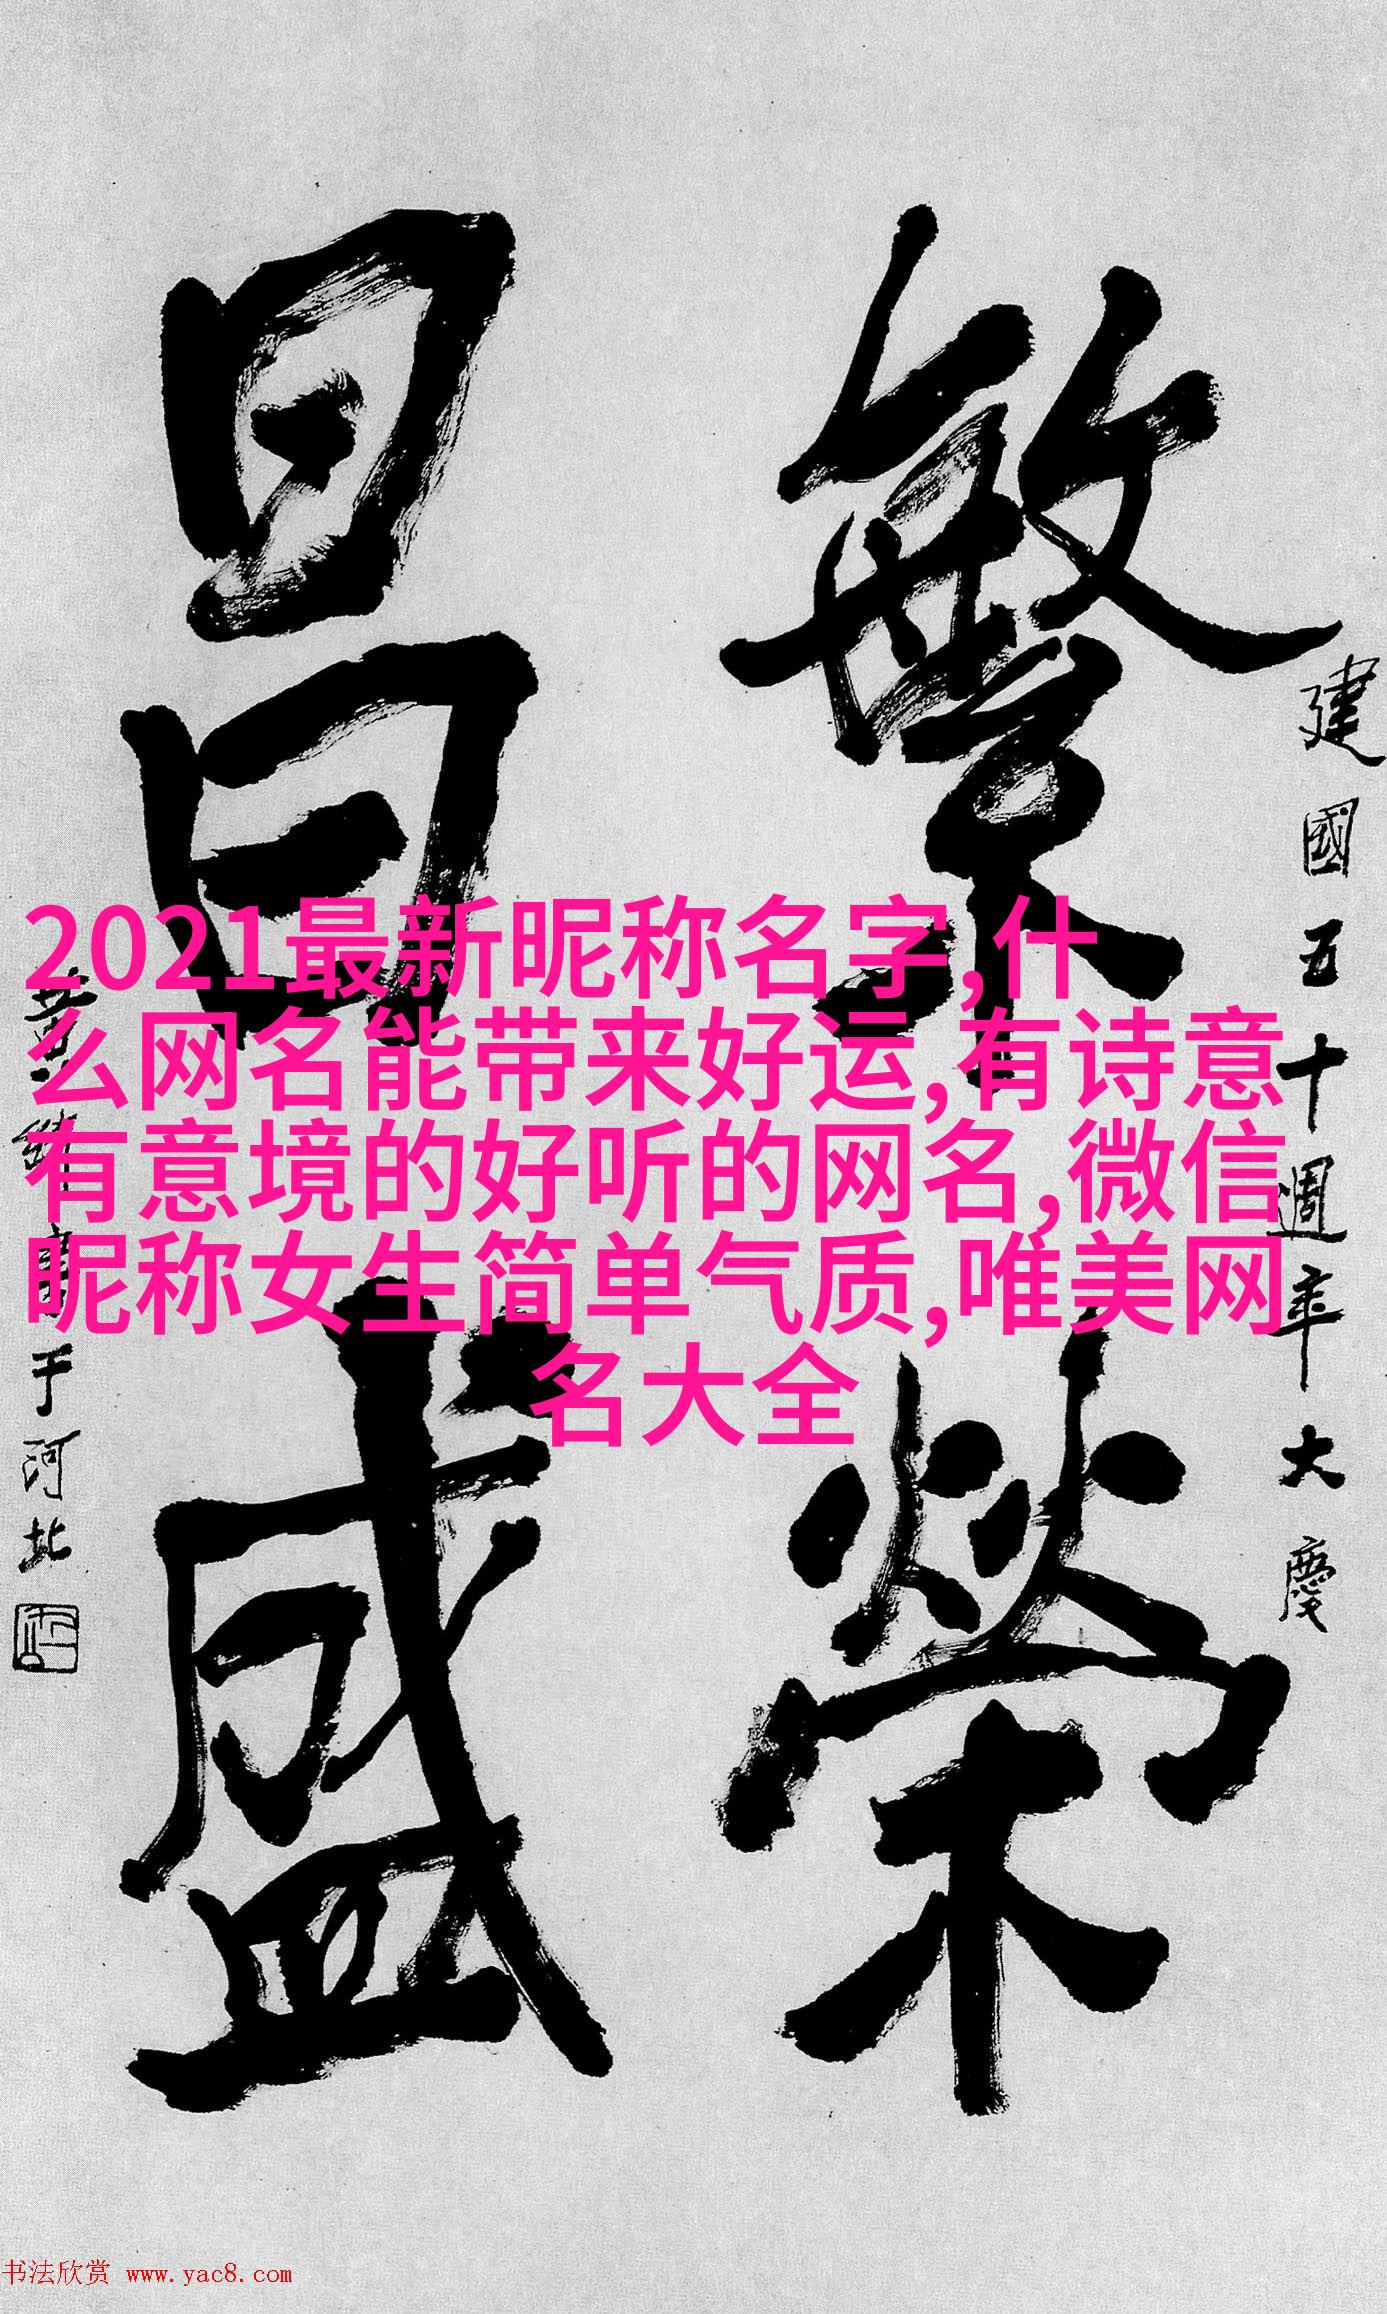 繁榮
昌盛
建國五十週年大慶
于河北
2021最新昵称名字,什
么网名能带来好运,有诗意
有意境的好听的网名,微信
昵称女生简单气质,唯美网
名大全
书法欣赏 www.yac8.com